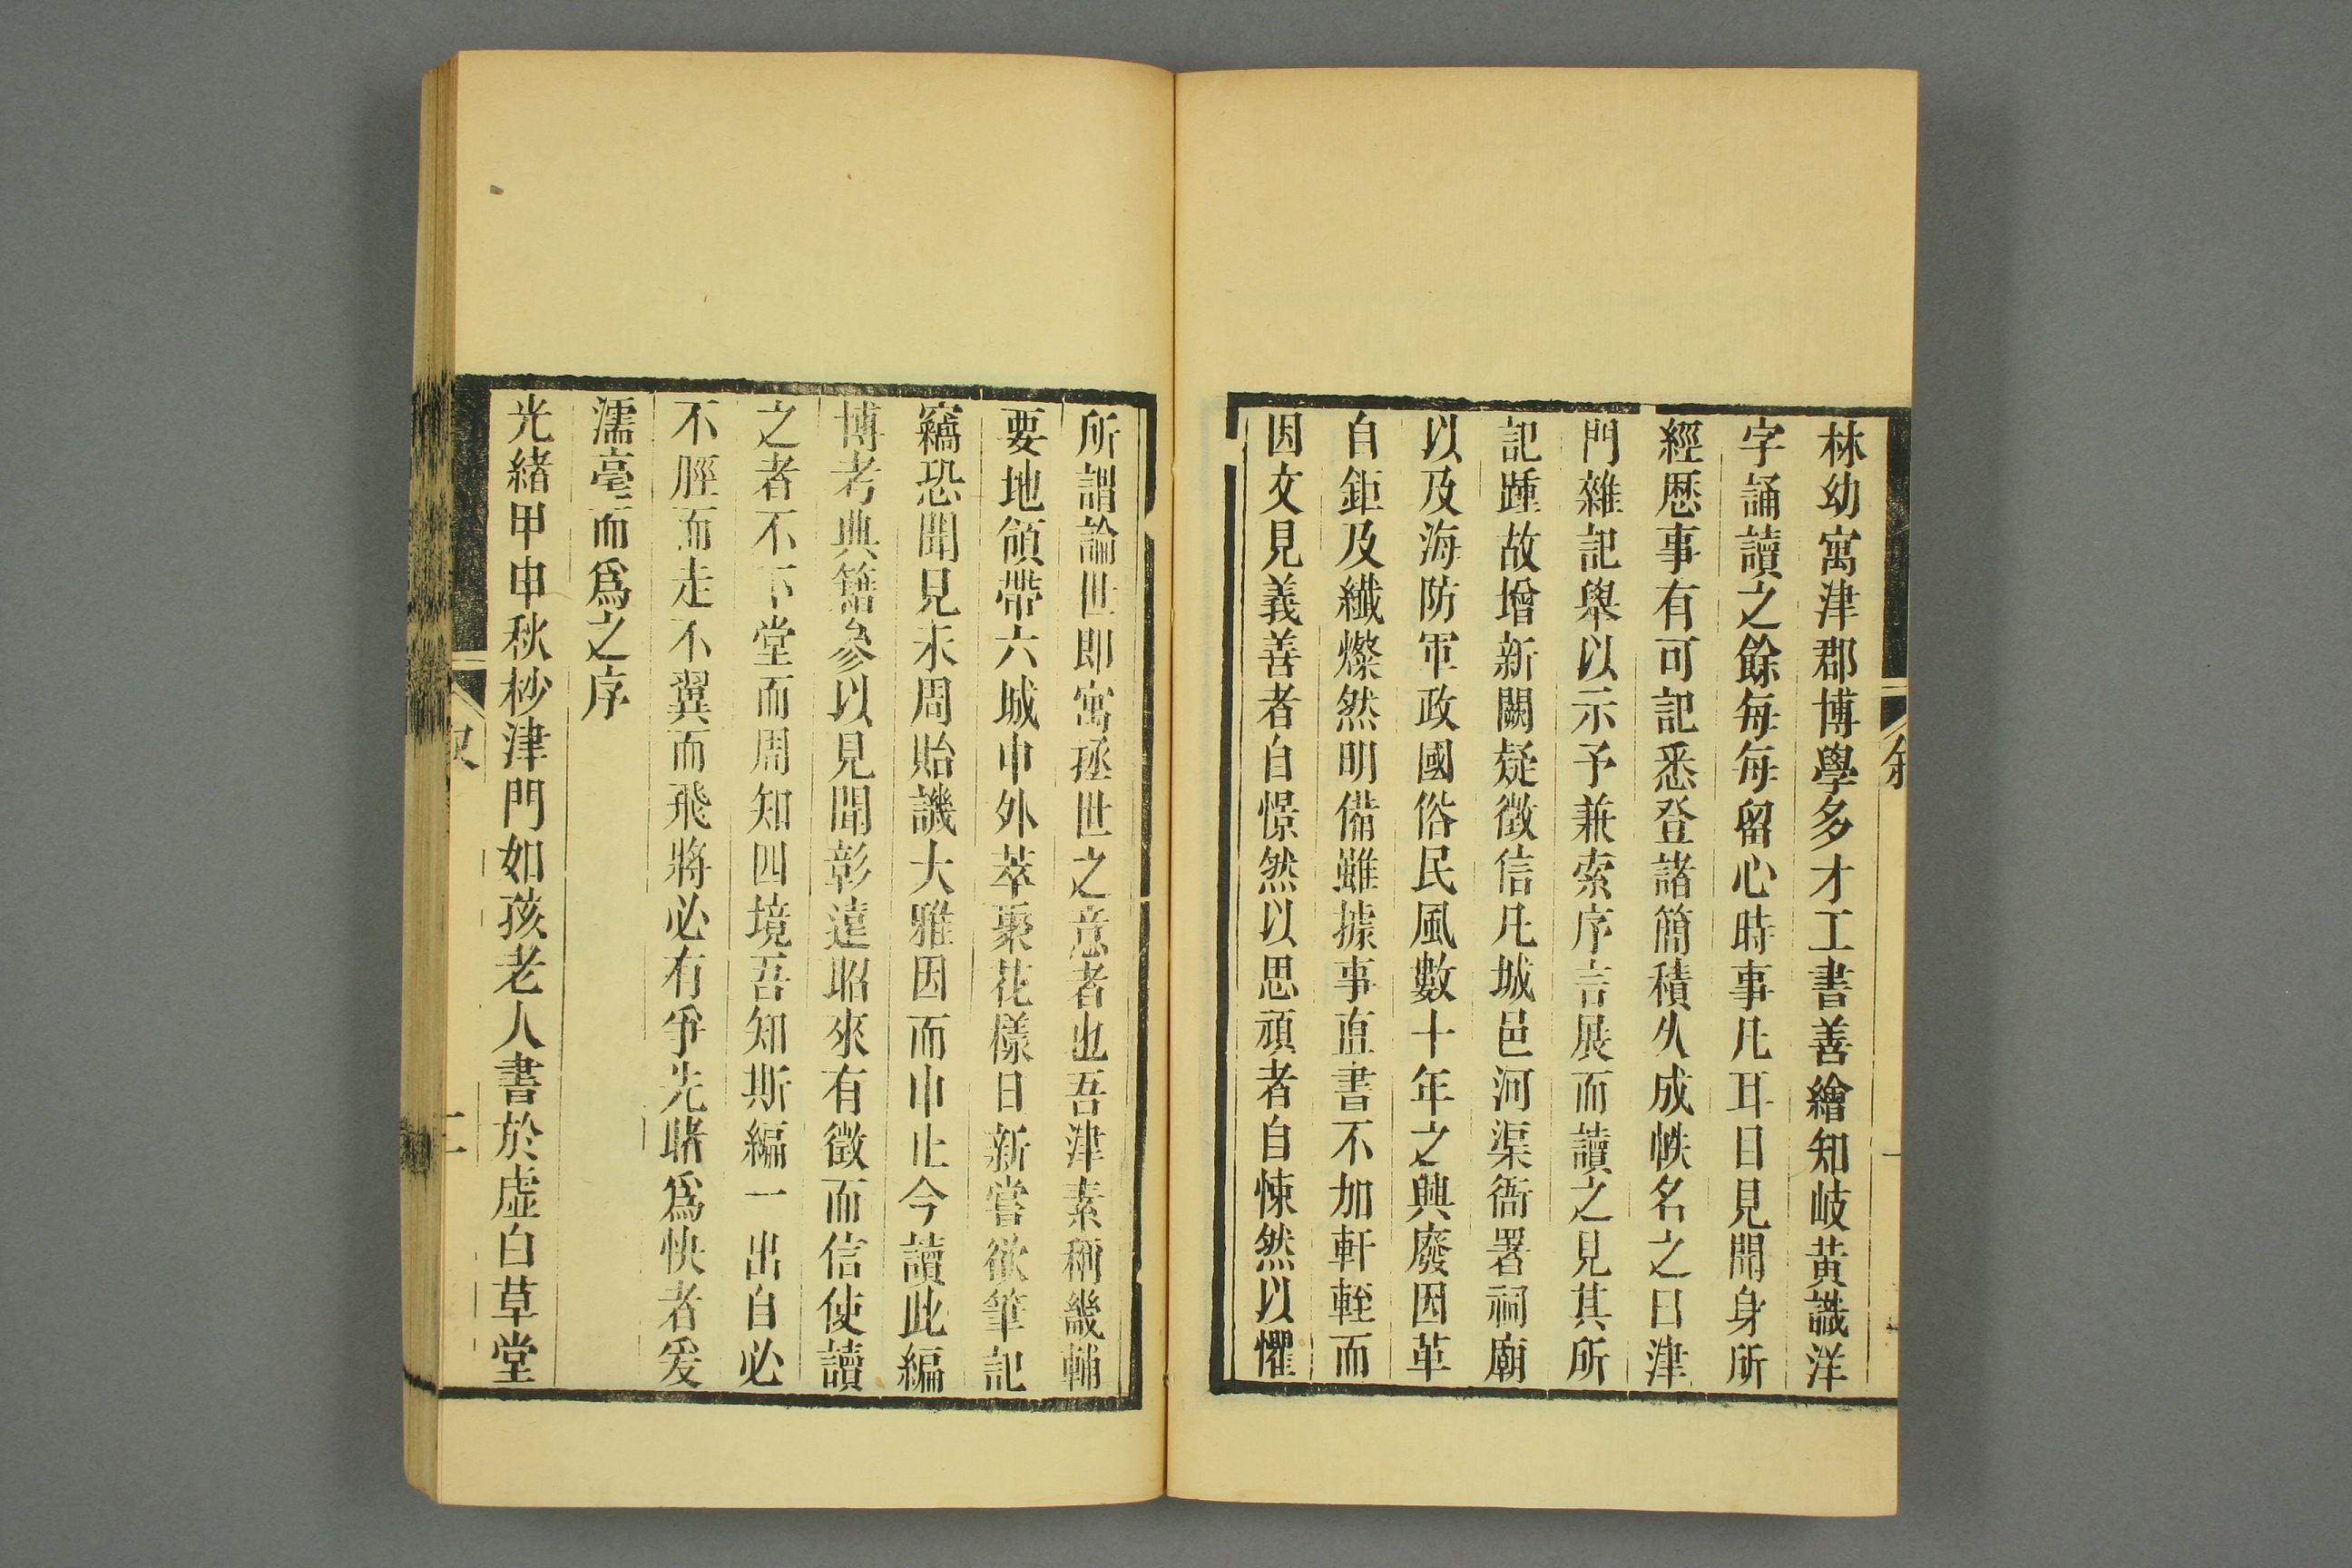 林幼寓津郡博學多才工書善繪知岐黃識洋
字誦讀之餘每每留心時事凡耳目見聞身所
經歷事有可記悉登諸簡積久成帙名之曰津
門雜記舉以示予兼索序言展而讀之見其所
記踵故增新闕疑徵信凡城邑河渠衙署祠廟
以及海防軍政國俗民風數十年之興廢因革
自鉅及纖燦然明備雖據事直書不加軒輊而
因文見義善者自憬然以思頑者自悚然以懼
所謂論世即寓拯世之意者也吾津素稱畿輔
要地領帶六城中外萃聚花樣日新嘗欲筆記
竊恐聞見未周貽譏大雅因而中止今讀此編
博考典籍參以見聞彰遠昭來有徵而信使讀
之者不下堂而周知四境吾知斯編一出自必
不脛而走不翼而飛將必有爭先睹爲快者爰
濡毫而爲之序
光緒甲申秋杪津門如孩老人書於虛白草堂